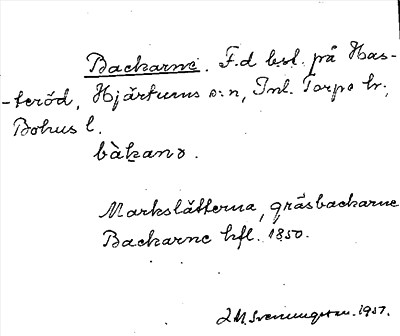 Backarne. F.d bst. på Has-
-teröd, Hjärtums s:n, Inl. Torpe hr.,
Bohus l.
bàkanə.
Markslätterna, gräsbackarne
Backarne hfl. 1850.
1937.